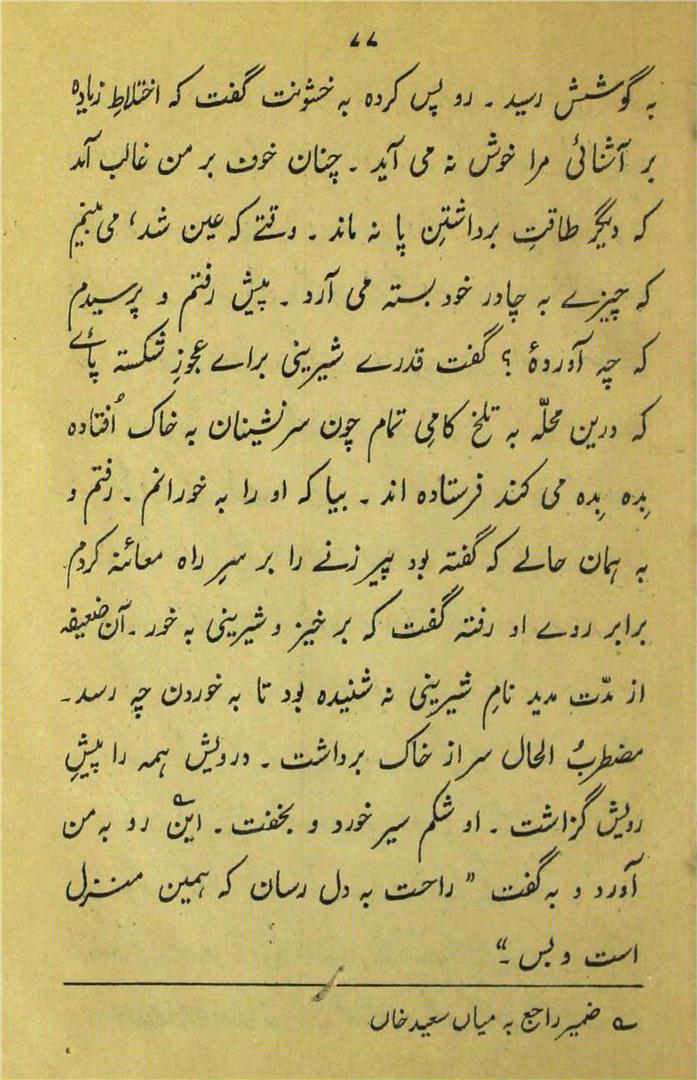 ۷۷
به گوشش رسید ۔ رو پس کرده به خشونت گفت که اختلاطِ زیاده
بر آشنائی مرا خوش نه می آید ۔ چنان خوف بر من غالب آمد
که دیگر طاقتِ برداشتنِ پا نه ماند ۔ وقتے که عین شد، می بینم
که چیزے به چادر خود بسته می آرد ۔ پیش رفتم و پرسیدم
که چه آوردهٔ ؟ گفت قدرے شیرینی براے عجوزِ شکسته پاۓ
که درین محلّه به تلخ کامیِ تمام چون سرنشینان به خاک اُفتاده
بِده بِده می کند فرستاده اند ۔ بیا که او را به خورانم ۔ رفتم و
به همان حالے که گفته بود پیر زنے را بر سرِ راه معائنه کردم
برابر روے او رفته گفت که بر خیز و شیرینی به خور ۔ آن ضعیفه
از مدّت مدید نامِ شیرینی نه شنیده بود تا به خوردن چه رسد ۔
مضطربُ الحال سر از خاک برداشت ۔ درویش همه را پیشِ
رویش گزاشت ۔ او شکم سیر خورد و بخفت ۔ این ؎ رو به من
آورد و به گفت " راحت به دل رسان که همین منزل
است و بس ۔"
؎ ضمیر راجع به میاں سعید خاں